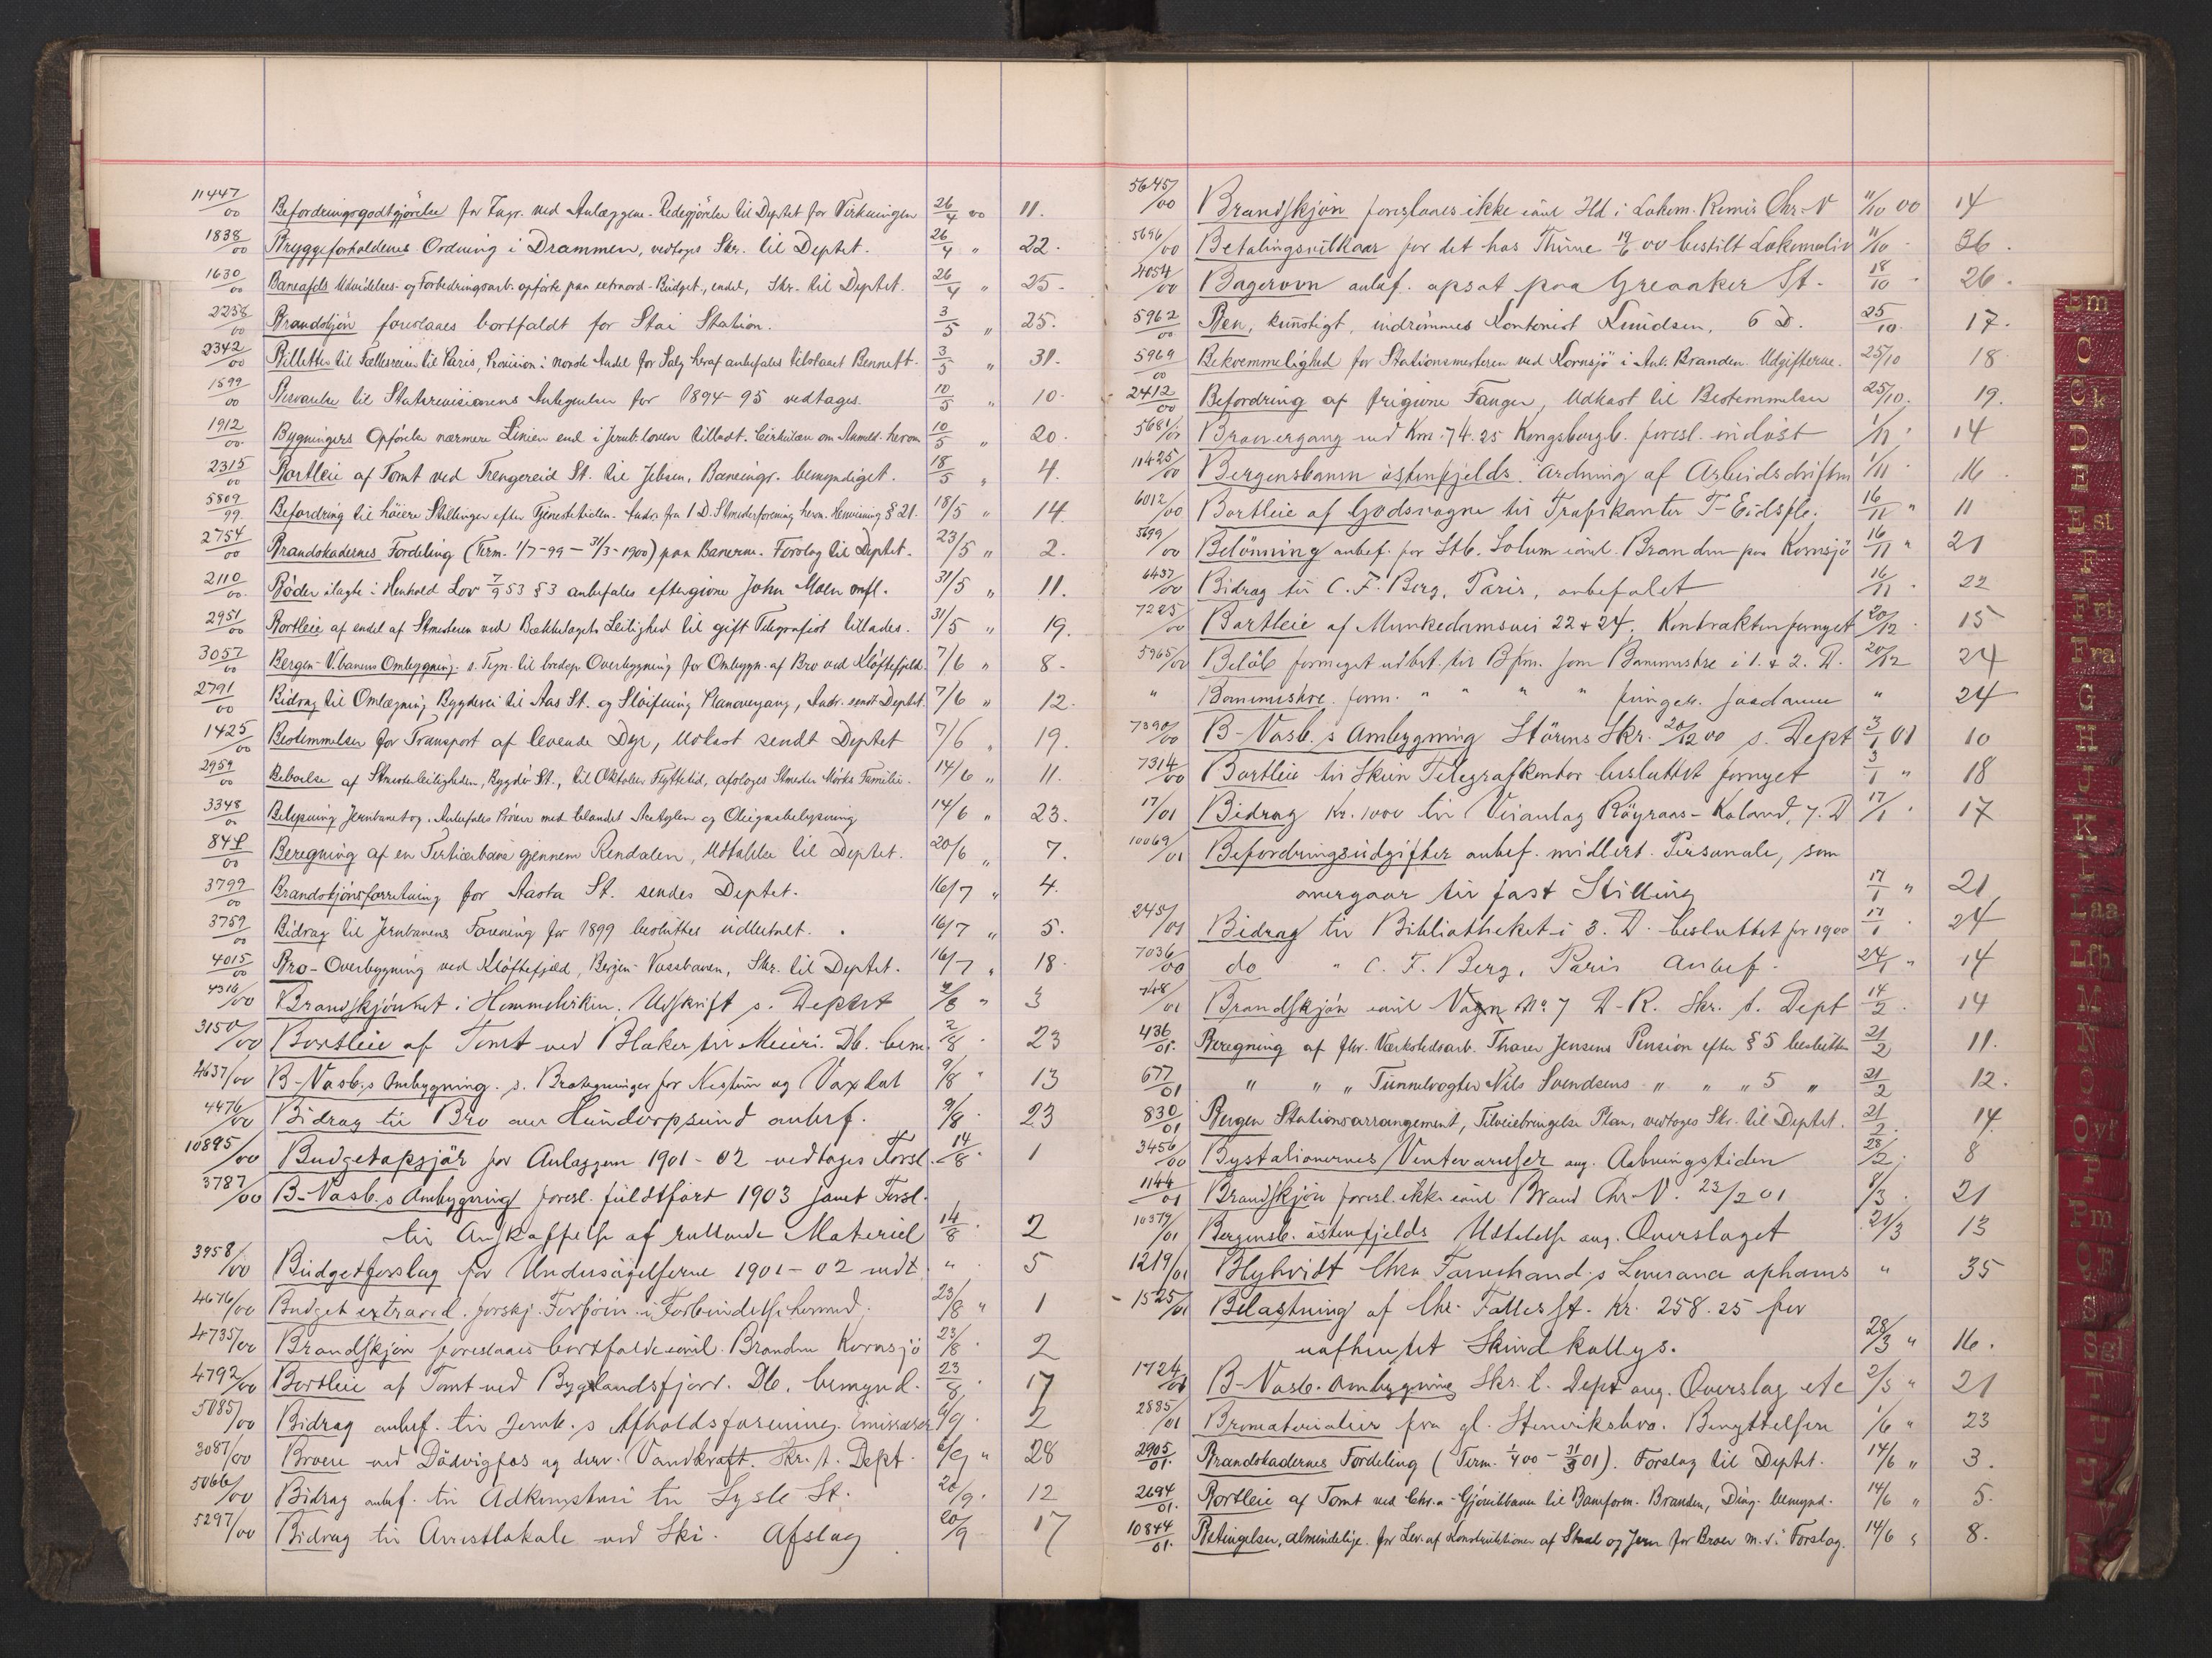 11447/00 Befordringsgodtgjörelse for Ingr. ved Anlæggene. Redegjörelse til Deptet for Virkningen 26/4 00 11.
1838/00 Bryggeforholdenes Ordning i Drammen, vedtages Skr. til Deptet. 26/4 " 22.
1630/00 Baneafdls Udvidelses- og Forbedringsarb. opförte paa extraord. Budget, Skr. til Deptet. 26/4 " 25.
2258/00 Brandskjön foreslaaes bortfaldt for Stai Station. 3/5 " 25.
2342/00 Billetter til Fællesreiser til Paris, Provision i norske Andel for Salg heraf anbefales tilstaaet Bennett. 3/5 " 31.
1599/00 Besvarelse til Statsrevisionens Antegnelser for 1894-95 vedtages. 10/5 " 10.
1912/00 Bygningers Opförelse nærmere Linien end i Jernb. loven tilladt. Cirkulære om Anmeld. herom 10/5 " 20.
2315/00 Bortleie af Tomt ved Trengereid St. til Jebsen, Baneingr. bemyndiget. 18/5 " 4.
5809/99 Befordring til höiere Stillinger efter Tjenestetiden. Andr. fra 1 D. Stmesterforening herom. Henvisning § 21. 18/5 " 14.
2754/00 Brandskadernes Fordeling (Term. 1/7-99 – 31/3-1900) paa Banerne. Forslag til Deptet. 23/5 " 2.
2110/00 Böder ilagte i Henhold Lov 7/9 53 § 3 anbefales eftergivne John Moen mfl. 31/5 " 11.
2951/00 Bortleie af endel af Stmesteren ved Bækkelagets Leilighed til gift Telegrafist tillades. 31/5 " 19.
3057/00 Bergen-V.banens Ombygning. s. Tegn. til bredsp. Overbygning for Ombygn. af Bro ved Klöftefjeld. 7/6 " 8.
2791/00 Bidrag til Omlægning Bygdevei til Aas St. og Slöifning Planovergang, Andr. sendt Deptet. 7/6 " 12.
1425/00 Bestemmelser for Transport af levende Dyr, Udkast sendt Deptet 7/6 " 19.
2959/00 Beboelse af Stmesterleiligheden, Bygdö St., til Oktober Flyttetid, afslages Stmester Mörks Familie. 14/6 " 11.
3348/00 Belysning Jernbanetog. Anbefales Pröver med blandet Acetylen og Oliegasbelysning 14/6 " 23.
848/00 Beregning af en Tertiærbane gjennem Rendalen, Udtalelse til Deptet. 20/6 " 7.
3799/00 Brandskjönsforretning for Aasta St. sendes Deptet. 16/7 " 4.
3759/00 Bidrag til Jernbanens Forening for 1899 besluttes udbetalt. 16/7 " 5.
4015/00 Bro-Overbygning ved Klöftefjeld, Bergen-Vossbanen, Skr. til Deptet. 16/7 " 18.
4316/00 Brandskjönnet i Hommelviken. Udskrift s. Deptet 2/8 " 3
3150/00 Bortleie af Tomt ved Blaker til Meieri. Db. bem. 2/8 " 23
4637/00 B-Vosb.s Ombygning. s. Brotegninger for Nestun og Vaxdal 9/8 " 13
4476/00 Bidrag til Bro over Hundorpsund anbef. 9/8 " 23
10895/00 Budgetopgjör for Anlæggene 1901-02 vedtages Forsl. 14/8 " 1
3787/00 B-Vosb.s Ombygning foresl. fuldtfört 1903 samt Forsl.
til Anskaffelse af rullende Materiel 14/8 " 2
3958/00 Budgetforslag for Undersögelserne 1901-02 vedt. " 5
4676/00 Budget extraord. forskj. Forföin. i Forbindelse hermed. 23/8 " 1
4735/00 Brandskjön foreslaaes bortfalde eövl. Branden Kornsjö 23/8 " 2
4792/00 Bortleie af Tomt ved Byglandsfjord. Db. bemynd. 23/8 " 17
5085/00 Bidrag anbef. til Jernb.s Afholdsforening. Emissær 6/9 " 2
3087/00 Broen ved Dödvigfos og derv. Vandkraft. Skr. t. Dept. 6/9 " 28
5066/00 Bidrag anbef. til Adkomstvei til Lysle St. 20/9 " 12
5297/00 Bidrag til Arrestlokale ved Ski. Afslag 20/9 17
5645/00 Brandskjön foreslaaes ikke eövl Ild i Lokom. Remis Chr-V 11/10 00 14
5696/00 Betalingsvilkaar for det hos Thune 19/6 00 bestilt Lokomotiv 11/10 " 36.
4054/00 Bagerovn anbef. opsat paa Greaaker St. 18/10 " 26.
5962/00 Ben, kunstigt, indrömmes Kontorist Knudsen, 6 D. 25/10 17.
5969/00 Bekvemmelighed for Stationsmesteren ved Kornsjö i Anl. Branden. Udgifterne. 25/10 18
2412/00 Befordring af frigivne Fanger, Udkast til Bestemmelser 25/10. 19.
5681/00 Broovergang ved Km. 74.25 Kongsbergb. foresl. indlöst 1/11 " 14
11425/00 Bergensbanen östenfjelds. Ordning af Arbeidsdriften 1/11 " 16
6012/00 Bortleie af Godsvogne til Trafikanter T-Eidsflo. 16/11 " 11
5699/00 Belönning anbef. for Stb. Solum eövl. Branden paa Kornsjö 16/11 " 21
6437/00 Bidrag til C. F. Berg, Paris, anbefalet 16/11 " 22
7225/00 Bortleie af Munkedamsvei 22 & 24. Kontrakten fornyet 20/12 " 15
5965/00 Belöb formeget udbet. til Bfm. som Banemestre i 1. & 2. D. 20/12 24
" Banemestre form. " " " " funger. saadanne " 24
7390/00 B-Vosb.s Ombygning Störens Skr. 20/12 00 s. Dept 3/1 01 10
7314/00 Bortleie til Skien Telegrafkontor besluttet fornyet 3/1 " 18
17/01 Bidrag Kr. 1000 til Veianlæg Röyraas-Kaland, 7. D 17/1 " 17
10069/01 Befordringsudgifter anbef. midlert. Personale, som
overgaar til fast Stilling 17/1 " 21
245/01 Bidrag til Bibliotheket i 3. D. besluttet for 1900 17/1 " 24
7036/00 do " C. F. Berg, Paris Anbef. 24/1 " 14
748/01 Brandskjön eövl Vogn No 7 D-R. Skr. t. Dept 14/2 " 14
436/01. Beregning af fhv. Værkstedsarb. Tharer Jensens Pension efter § 5 besluttes 21/2 11.
677/01 " " " Tunnelvogter Nils Svendsens " " " 5 " 21/2 12.
830/01 Bergen Stationsarrangement, Tilveiebringelse Plan, vedtages Skr. til Deptet. 21/2. 14.
3456/00 Bystationernes Ventevarelser ang. Aabningstiden 28/2 " 8
1144/01 Brandskjön foresl. ikke eövl Brand Chr-V. 23/2 01 8/3 " 21
10379/01 Bergensb. östenfjelds Udtalelse ang. Overslaget 21/3 13
1219/01 Blyhvidt Chra Farvehand.s Leverance ophæves " 35
1525/01 Belastning af Chr. Fællesst. Kr. 258.25 for
uafhentet Skindkollys. 28/3 " 16.
1724/01 B-Vosb. ombygning Skr. t. Dept ang. Overslag etc 2/5 " 21
2885/01 Bromaterialier fra gl. Henriksbro. Benyttelsen 1/6 " 23
2905/01. Brandskadernes Fordeling (Term. 1/4 00 – 31/3 01). Forslag til Deptet. 14/6 " 3.
2694/01. Bortleie af Tomt ved Chr.a-Gjövikbane til Baneform. Branden, Ding. bemynd. 14/6 " 5.
10844/01. Betingelser, almindelige for Lev. af Konstruktioner af Staal og Jern for Broer m.v. Forslag. 14/6 " 8.
Bm
C
Ck
D
E
Est
F
Frt
Fra
G
H
J
K
L
Laa
Lfh
M
N
O
Ovf
P
Pm
Q.R
S
Sgl
T
U
V